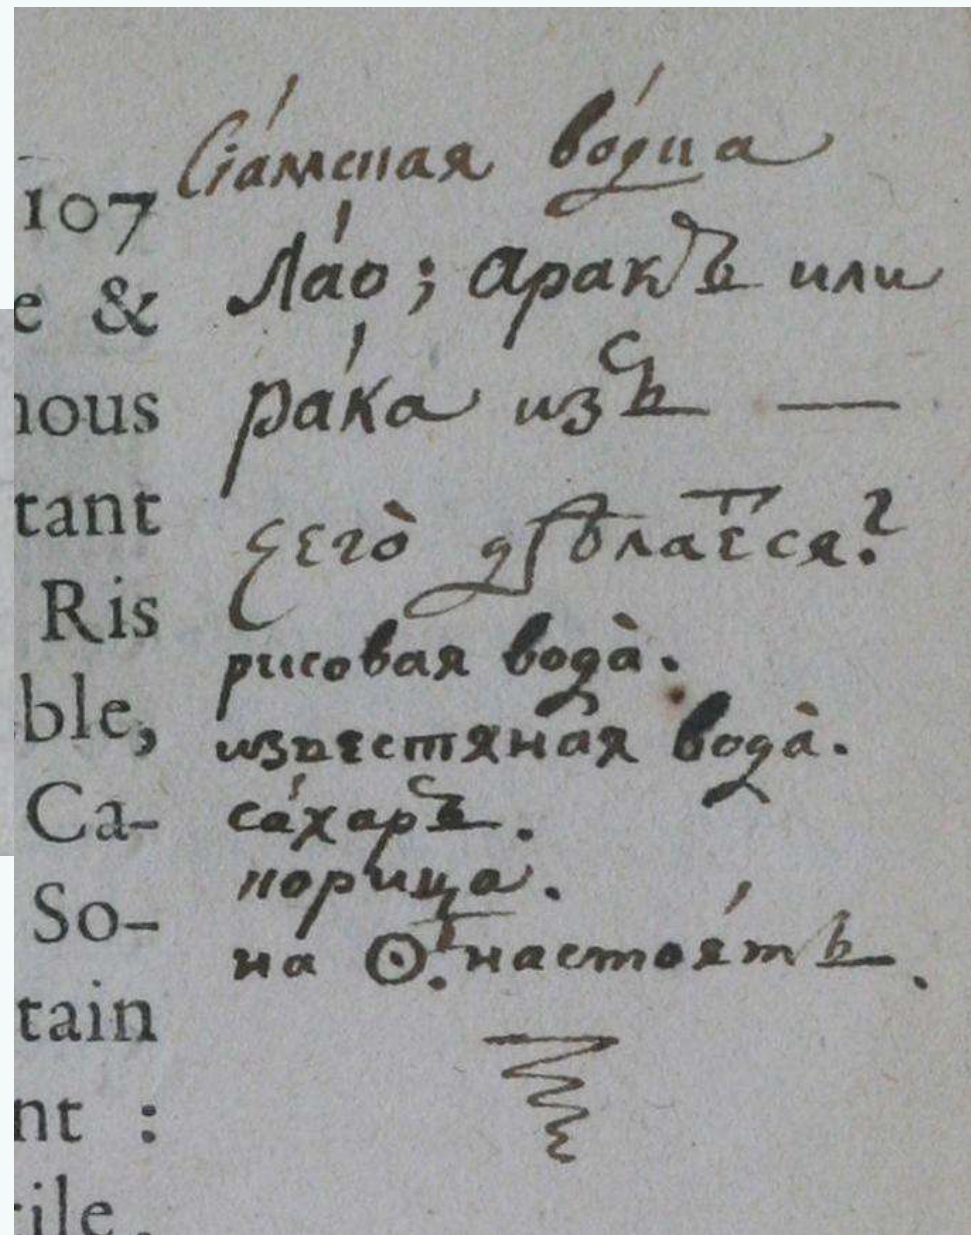 107
e &
nous
tant
Ris
ble,
Ca-
So-
tain
nt :
cile,
Сіа́мская во́дка
Ла́о; аракъ или
ра́ка изъ —
чего̀ дѣлается?
рисовая вода̀.
известяная вода̀.
са́харъ.
корица.
на ☉. настоя́тъ.